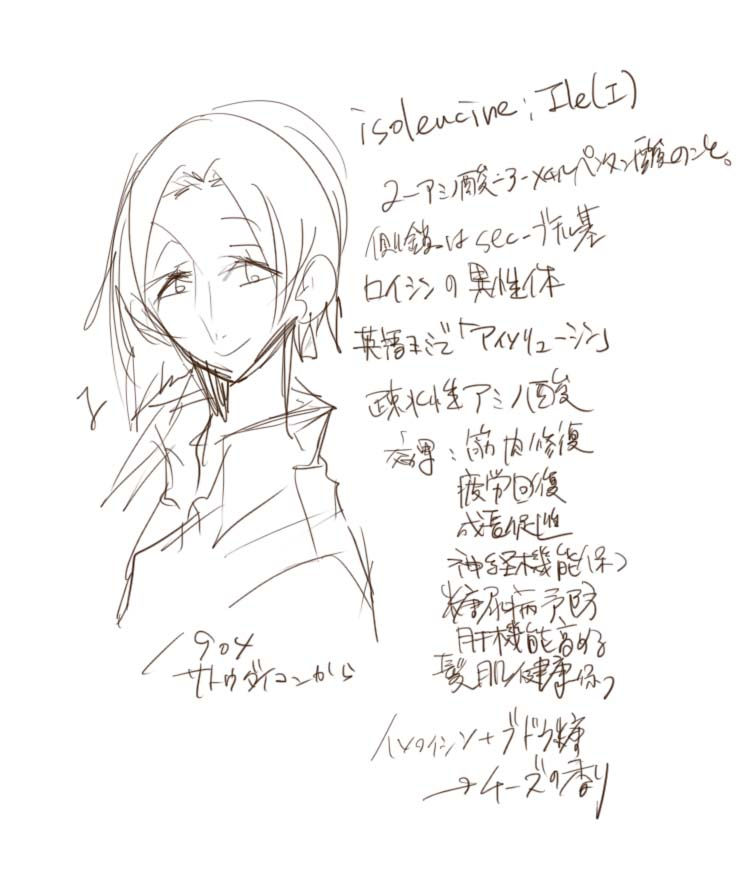 isoleucine; Ile(I)
2-アミノ酸-3-メチルペンタン酸のこと。
側鎖はsec-ブチル基
ロイシンの異性体
英語よみで「アイソリューシン」
疎水性アミノ酸
効果:筋肉修復
疲労回復
成長促進
神経機能保つ
糖尿病予防
肝機能高める
髪肌健康保つ
1904
サトウダイコンから
イソロイシン+ブドウ糖
→チーズの香り